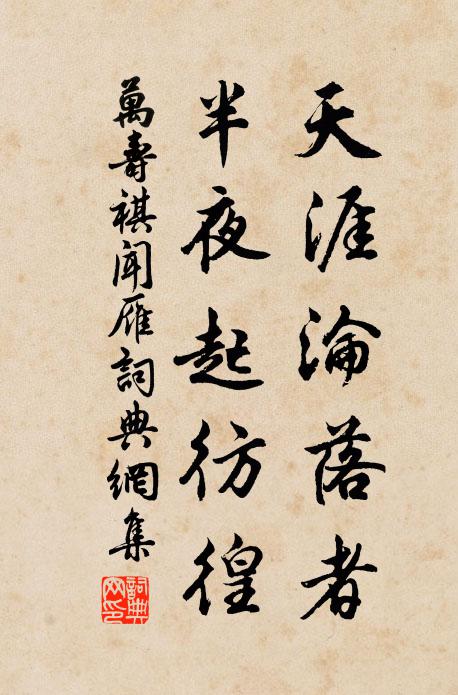 天涯淪落者
半夜起彷徨
萬壽祺聞雁詞典網集
詞典
网印